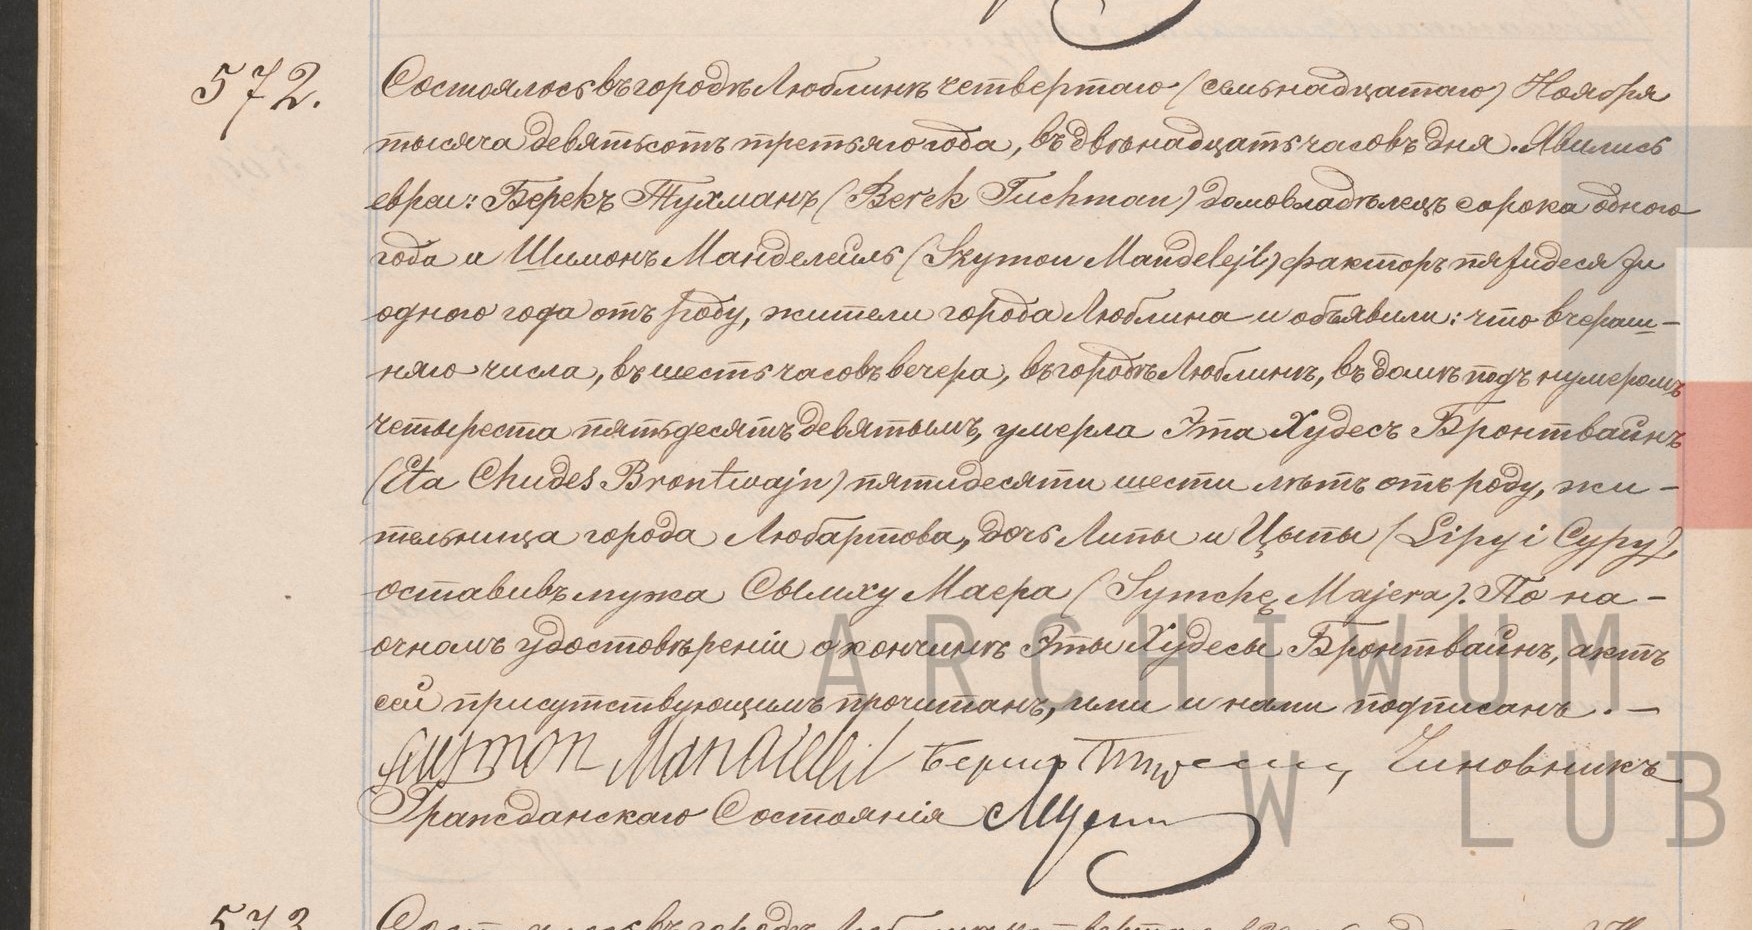 572.
Состоялось въ городѣ Люблинѣ четвертаго (семьнадцатаго) Ноября
тысяча девятьсотъ третьяго года, въ двѣнадцать часовъ дня. Явились
евреи: Берекъ Тухманъ (Berek Tuchman) домовладѣлецъ сорока одного
года и Шимонъ Манделейль (Szymon Mandelejl) факторъ пятидесяти
одного года отъ роду, жители города Люблина и объявили: что вчераш-
няго числа, въ шесть часовъ вечера, въ городѣ Люблинѣ, въ домѣ подъ нумеромъ
четыреста пятьдесятъ девятымъ, умерла Эта Худесъ Бронтвайнъ
(Eta Chudes Brontwajn) пятидесяти шести лѣтъ отъ роду, жи-
тельница города Любартова, дочь Липы и Цыпы (Lipy i Cypy),
оставивъ мужа Сымху Маера (Symchę Majera). По на-
очномъ удостовѣреніи о кончинѣ Эты Худесы Бронтвайнъ, актъ
сей присутствующимъ прочитанъ, ими и нами подписанъ. —
Чиновникъ
Гражданскаго Состоянія
573
ARCHIWUM
W LUB